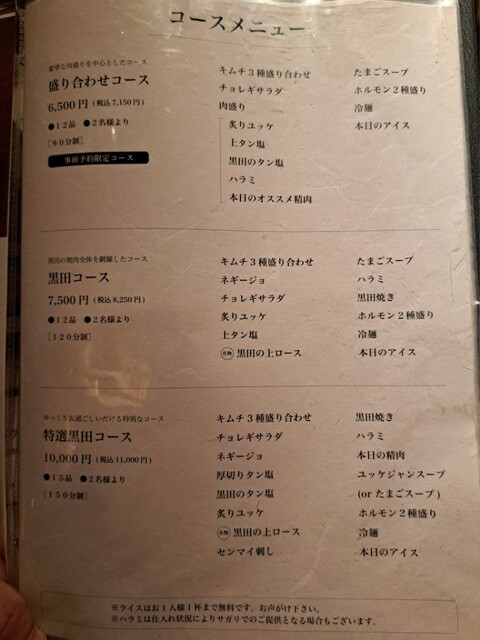 コースメニュー
豪華な肉盛りを中心としたコース
盛り合わせコース
6,500円 (税込7,150円)
●12品 ●2名様より
[90分制]
事前予約限定コース
キムチ3種盛り合わせ
チョレギサラダ
肉盛り
炙りユッケ
上タン塩
黒田のタン塩
ハラミ
本日のオススメ精肉
たまごスープ
ホルモン2種盛り
冷麺
本日のアイス
黒田の焼肉全体を網羅したコース
黒田コース
7,500円 (税込8,250円)
●12品 ●2名様より
[120分制]
キムチ3種盛り合わせ
ネギージョ
チョレギサラダ
炙りユッケ
上タン塩
名物 黒田の上ロース
たまごスープ
ハラミ
黒田焼き
ホルモン2種盛り
冷麺
本日のアイス
ゆっくりお過ごしいただける特別なコース
特選黒田コース
10,000円 (税込11,000円)
●15品 ●2名様より
[150分制]
キムチ3種盛り合わせ
チョレギサラダ
ネギージョ
厚切りタン塩
黒田のタン塩
炙りユッケ
名物 黒田の上ロース
センマイ刺し
黒田焼き
ハラミ
本日の精肉
ユッケジャンスープ
(or たまごスープ)
ホルモン2種盛り
冷麺
本日のアイス
※ライスはお1人様1杯まで無料です。お声がけ下さい。
※ハラミは仕入れ状況によりサガリでのご提供となる場合もございます。